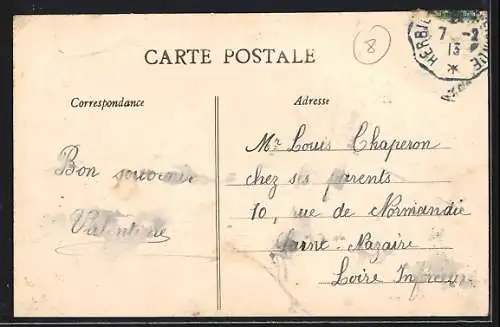 CARTE POSTALE
8
HERBI
7 -2
13
*
Correspondance
Adresse
Bon souvenir
Valentine
Mr Louis Chaperon
chez ses parents
10, rue de Normandie
Saint-Nazaire
Loire Infreure